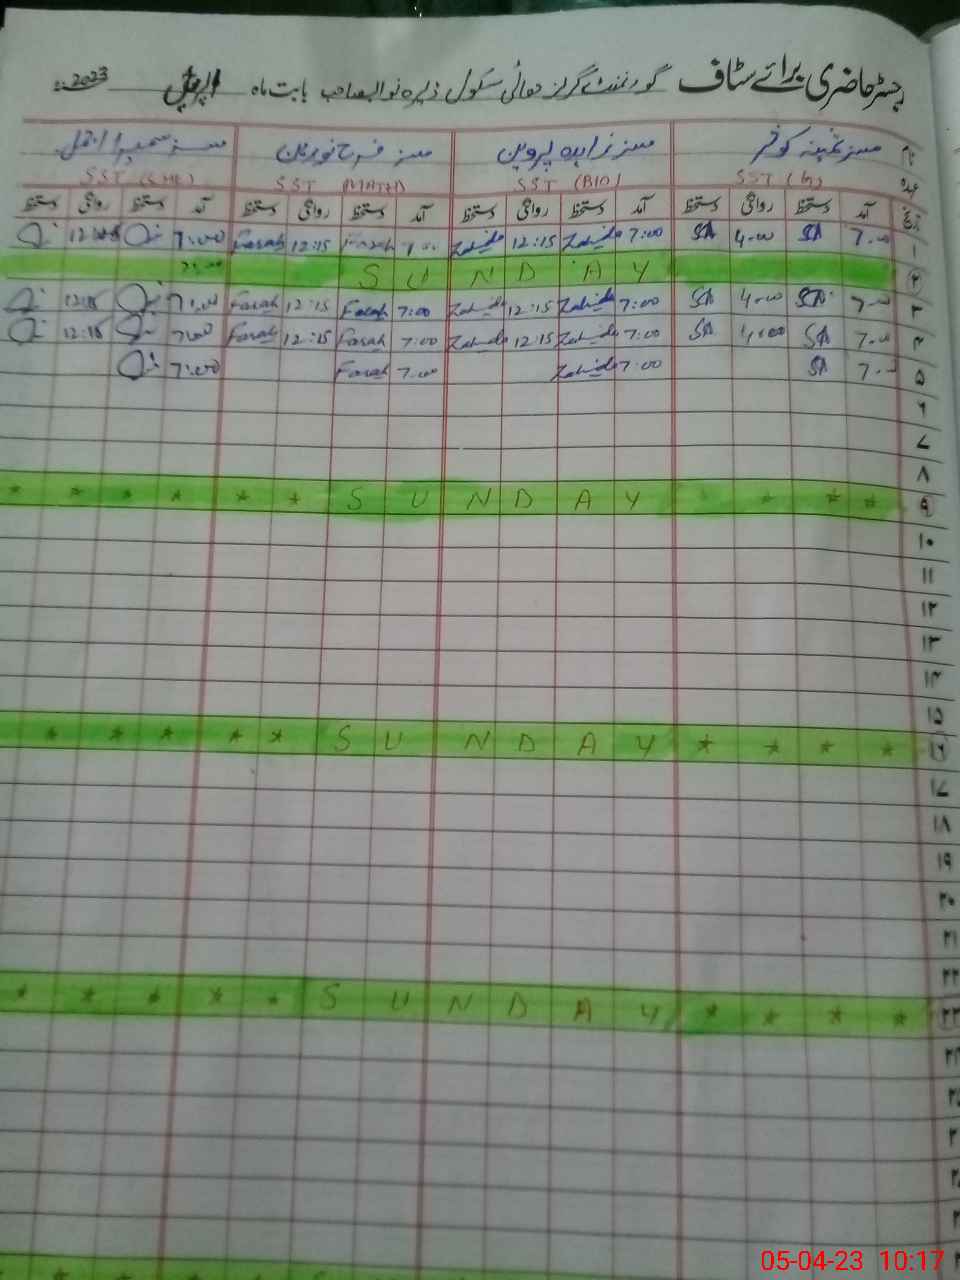 رجسٹر حاضری برائے سٹاف گورنمنٹ گرلز ہائی سکول ڈیرہ نواب صاحب بابت ماہ اپریل 2023ء
نام مسز ثمینہ کوثر مسز زاہدہ پروین مسز فرح نورین مسز سمیرا
عہدہ SST (BIO) SST (MATH) SST
تاریخ آمد دستخط روانگی دستخط آمد دستخط روانگی دستخط آمد دستخط روانگی دستخط آمد دستخط روانگی دستخط
۱ 7:00 SA 4:00 SA 7:00 Zahida 12:15 Zahida 7:00 Farah 12:15 Farah 7:00
۲ SUNDAY
۳ 7:00 SA 4:00 SA 7:00 Zahida 12:15 Zahida 7:00 Farah 12:15 Farah 7:00 12:15
۴ 7:00 SA 4:00 SA 7:00 Zahida 12:15 Zahida 7:00 Farah 12:15 Farah 7:00 12:15
۵ 7:00 SA 7:00 Zahida 7:00 Farah 7:00
۶
۷
۸
۹ * * * * SUNDAY * * * * * *
۱۰
۱۱
۱۲
۱۳
۱۴
۱۵
۱۶ * * * * SUNDAY * * * * *
۱۷
۱۸
۱۹
۲۰
۲۱
۲۲
۲۳ * * * * SUNDAY * * * * *
۲۴
05-04-23 10:17